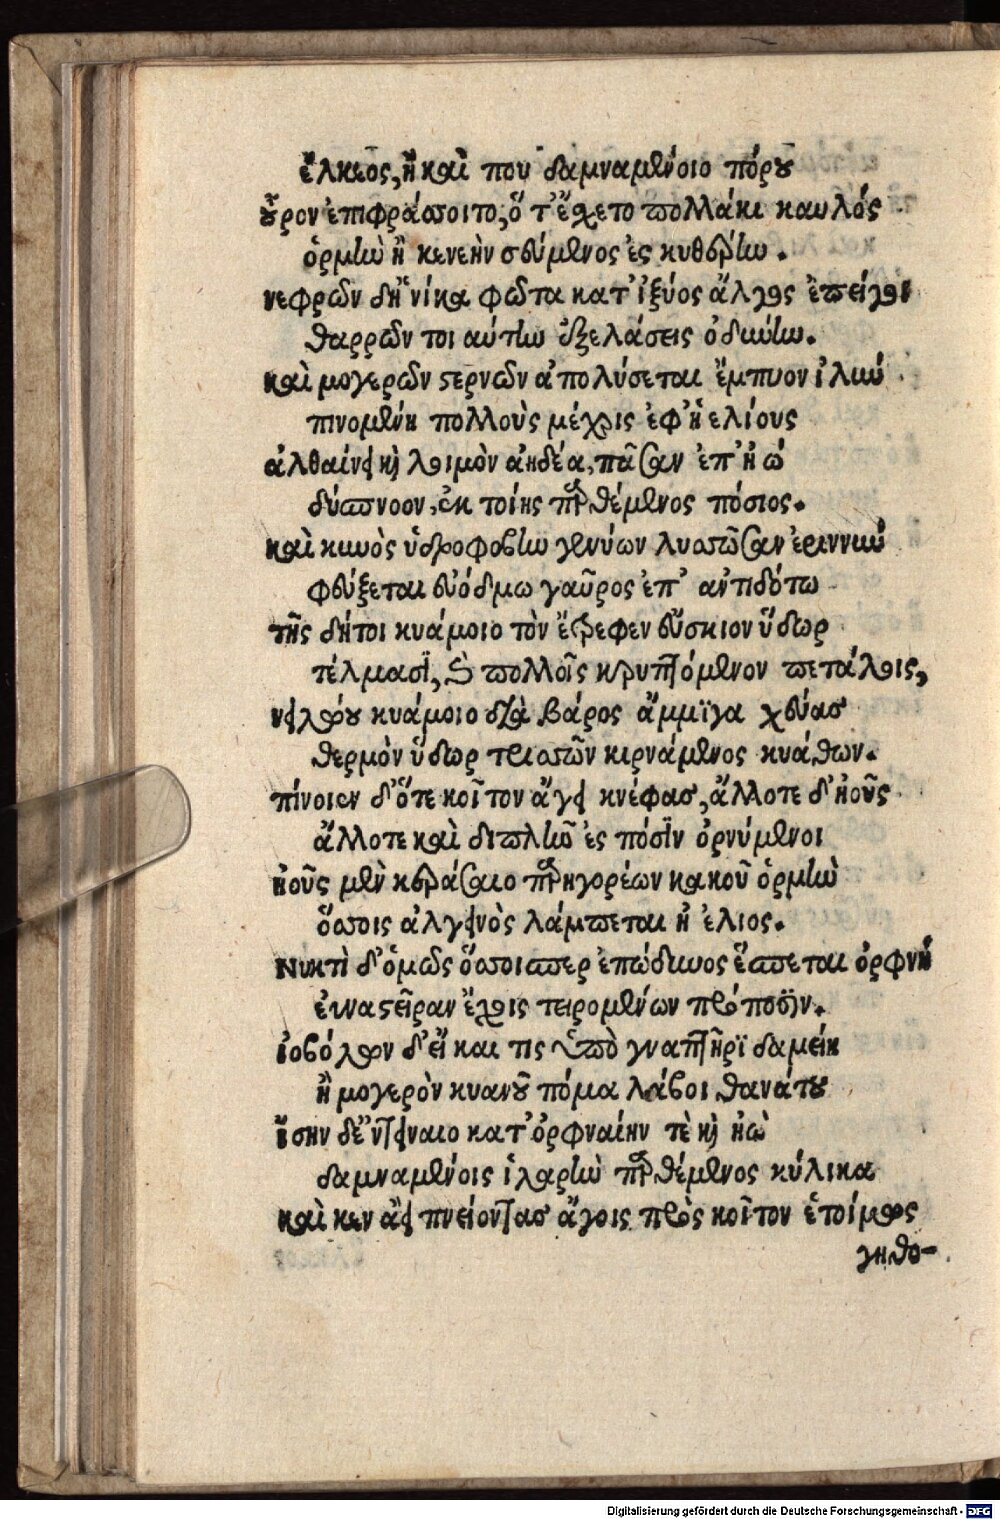 ἕλκεος, ἢ καὶ που δαμναμένοιο πόρου
οὖρον ἐπιφράσσοιτο, ὅ τ' ἔχετο πολλάκι καυλός
ὁρμὴν ἢ κενεὴν σευόμενος ἐς κυθέρην.
νεφρῶν δ' ἡνίκα φῶτα κατ' ἰξύος ἄλγος ἐπείγοι
θαρρῶν τοι αὐτὴν ἐξελάσεις ὀδύνην.
καὶ μογερῶν στέρνων ἀπολύσεται ἔμπυον ἰλὺν
πινομένη πολλοὺς μέχρις ἐφ' ἡελίους
ἀλθαίνει καὶ λοιμὸν ἀηδέα, πᾶσαν ἐπ' ἠῶ
δύσπνοον, ἐκ τοίης προθέμενος πόσιος.
καὶ κυνὸς ὑδροφόβην γενύων λυσσῶσαν ἐριννὺν
φεύξεται εὐόδμω γαῦρος ἐπ' ἀντιδότω
τῆς δήτοι κυάμοιο τὸν ἔτρεφεν εὔσκιον ὕδωρ
τέλμασϊ, καὶ πολλοῖς κρυπτόμενον πετάλοις,
νειλῴου κυάμοιο διὰ βάρος ἄμμϊγα χεύας
θερμὸν ὕδωρ τρισσῶν κιρνάμενος κυάθων.
πίνοιεν δ' ὅτε κοῖτον ἄγει κνέφας, ἄλλοτε δ' ἠοῦς
ἄλλοτε καὶ διπλῆν ἐς πόσϊν ὀρνύμενοι
ἠοῦς μὲν κεράσαιο προηγορέων κακοῦ ὁρμὴν
ὅσσοις ἀλγεινὸς λάμπεται ἠέλιος.
Νυκτὶ δ' ὁμῶς ὅσσοισπερ ἐπώδυνος ἕσπεται ὀρφνὴ
εὐναστεῖραν ἔχοις τειρομένων πρόποσϊν.
ἰοβόλων δ' εἴ και τις ὑπὸ γναπτῆρϊ δαμείη
ἢ μογερὸν κυανοῦ πόμα λάβοι θανάτου
ἴσην δ' ἐντείναιο κατ' ὀρφναίην τὲ καὶ ἠὼ
δαμναμένοις ἱλαρὴν προθέμενος κύλικα
καὶ κεν ἀεὶ πνείοντας ἄγοις πρὸς κοῖτον ἑτοίμως
γηθο-
Digitalisierung gefördert durch die Deutsche Forschungsgemeinschaft - DFG